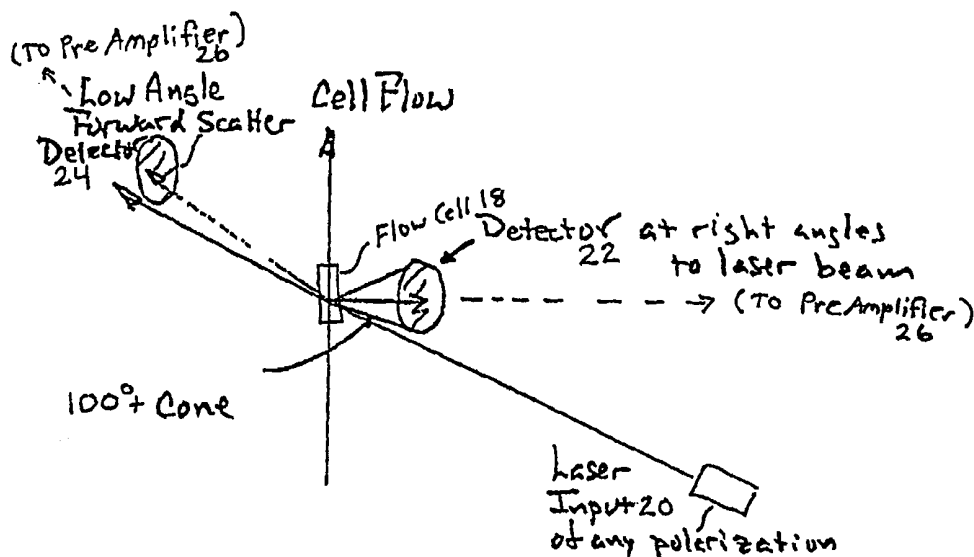 (To Pre Amplifier)
26
Low Angle
Forward Scatter
Detector
24
Cell Flow
Flow Cell 18
Detector at right angles
22 to laser beam
(To PreAmplifier)
26
100°+ Cone
Laser
Input 20
of any polarization